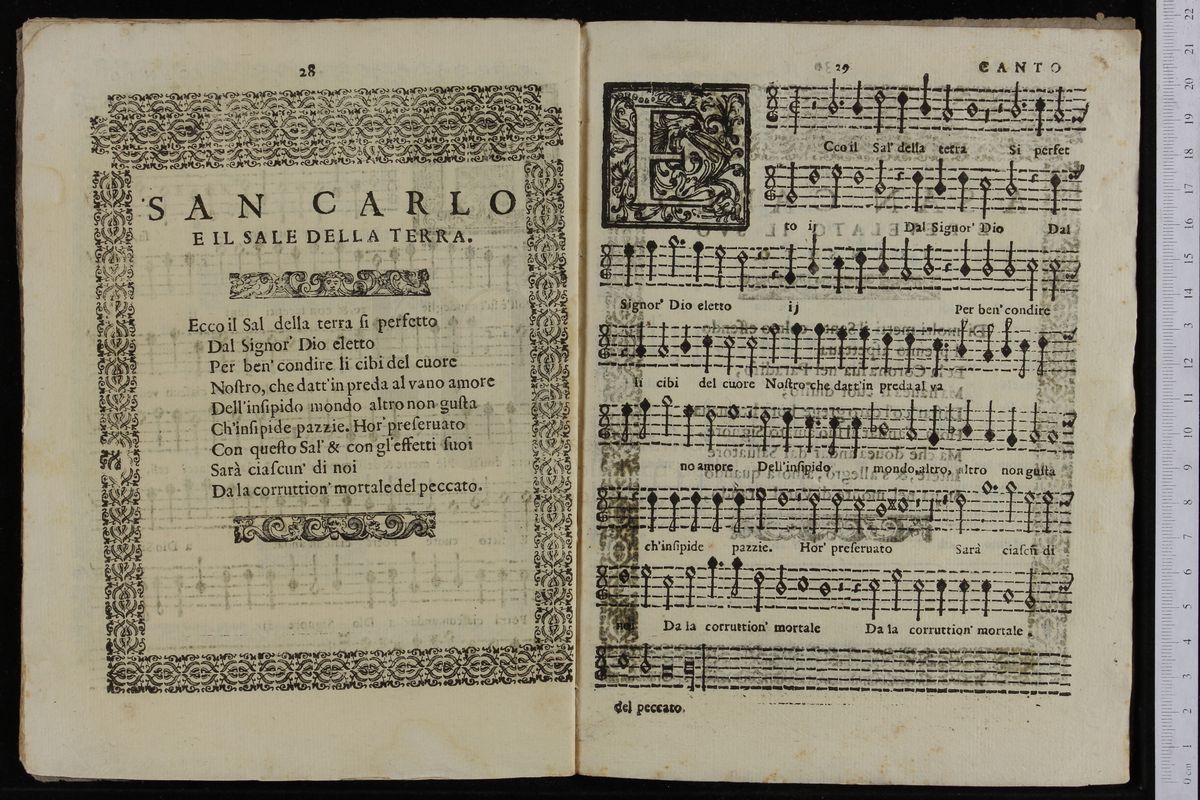 28
SAN CARLO
E IL SALE DELLA TERRA.
Ecco il Sal della terra ſi perfetto
Dal Signor' Dio eletto
Per ben' condire li cibi del cuore
Noſtro, che datt'in preda al vano amore
Dell'inſipido mondo altro non guſta
Ch'inſipide pazzie. Hor' preſeruato
Con queſto Sal' & con gl'effetti ſuoi
Sarà ciaſcun' di noi
Da la corruttion' mortale del peccato.
29 CANTO
E
Cco il Sal' della terra Si perfet
to ij Dal Signor' Dio Dal
Signor' Dio eletto ij Per ben' condire
li cibi del cuore Noſtro che datt'in preda al va
no amore Dell'inſipido mondo altro, altro non guſta
ch'inſipide pazzie. Hor' preſeruato Sarà ciaſcū di
noi Da la corruttion' mortale Da la corruttion' mortale
del peccato.